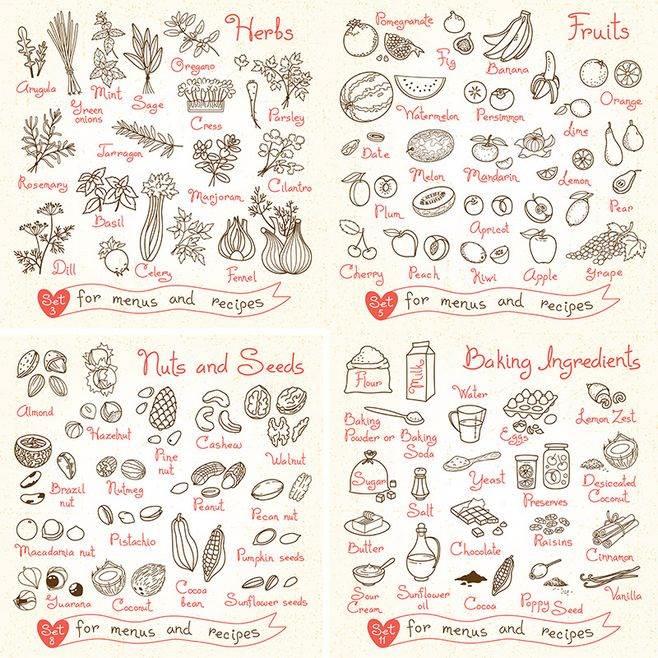 Herbs
Arugula
Green
onions
Mint
Sage
Oregano
Cress
Parsley
Rosemary
Tarragon
Basil
Marjoram
Cilantro
Dill
Celery
Fennel
Set
3
for menus and recipes
Fruits
Pomegranate
Fig
Banana
Orange
Watermelon
Persimmon
Lime
Date
Melon
Mandarin
Lemon
Plum
Apricot
Pear
Cherry
Peach
Kiwi
Apple
Grape
Set
5
for menus and recipes
Nuts and Seeds
Almond
Hazelnut
Pine
nut
Cashew
Walnut
Brazil
nut
Nutmeg
Peanut
Pecan nut
Macadamia nut
Pistachio
Cocoa
bean
Pumpkin seeds
Guarana
Coconut
Sunflower seeds
Set
8
for menus and recipes
Baking Ingredients
Flour
Milk
Water
Eggs
Lemon Zest
Baking
Powder or
Baking
Soda
Sugar
Salt
Yeast
Preserves
Desiccated
Coconut
Butter
Chocolate
Raisins
Cinnamon
Sour
Cream
Sunflower
oil
Cocoa
Poppy Seed
Vanilla
Set
11
for menus and recipes